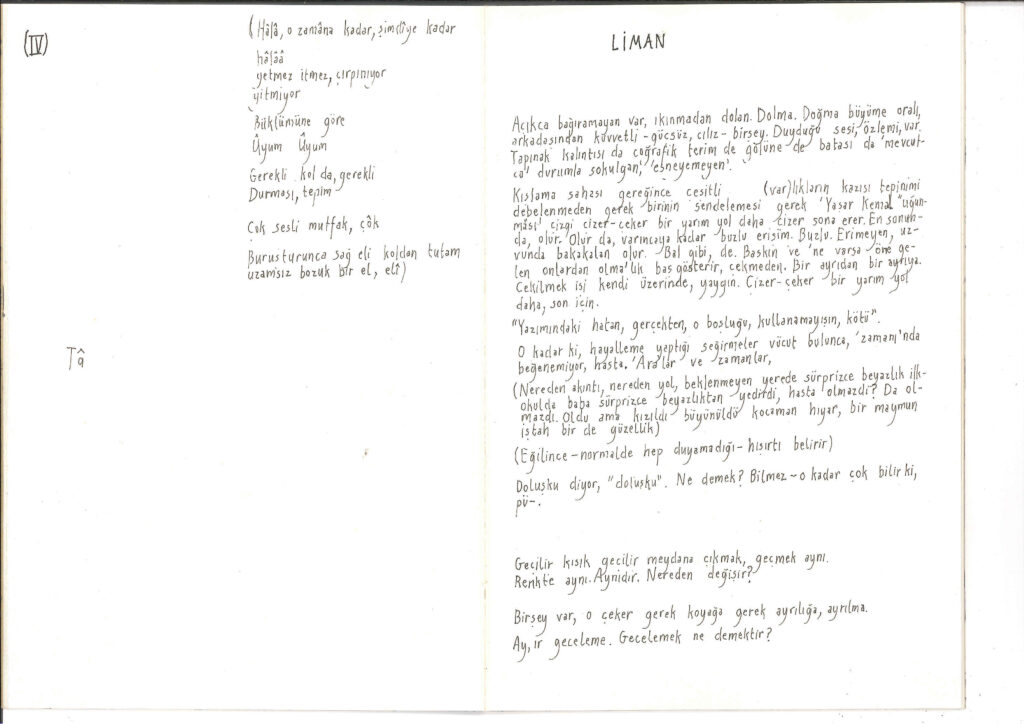 (IV)
(Hâlâ, o zamâna kadar, şimdîye kadar
hâlââ
yetmez itmez, çırpınıyor
yitmiyor
Büklümüne göre
Ûyum Ûyum
Gerekli kol da, gerekli
Durması, tepim
Çok sesli mutfak, çôk
Buruşturunca sağ eli koldan tutam
uzamsız bozuk bir el, elî)
Tâ
LİMAN
Açıkca bağıramayan var, ıkınmadan dolan. Dolma. Doğma büyüme oralı,
arkadasından kuvvetli - güçsüz, cılız - birşey. Duyduğu sesi, özlemi, var.
Tapınak kalıntısı da coğrafik terim de gölüne de batası da 'mevcut-
ca' durumla sokulgan, 'esneyemeyen'.
Kışlama sahası gereğince çeşitli (var)lıkların kazısı tepinimi
debelenmeden gerek birinin sendelemesi gerek 'Yaşar Kemal "uğun-
ması' çizgi çizer-çeker bir yarım yol daha çizer sona erer. En sonun-
da, olur. Olur da, varıncaya kadar buzlu erişim. Buzlu. Erimeyen, uz-
vunda bakakalan olur. Bal gibi, de. Baskın ve 'ne varsa öne ge-
len onlardan olma'lık baş gösterir, çekmeden. Bir ayrıdan bir ayrıya.
Çekilmek işi kendi üzerinde, yaygın. Çizer-çeker bir yarım yol
daha, son için.
"Yazımındaki hatan, gerçekten, o boşluğu, kullanamayışın, kötü".
O kadar ki, hayalleme yeptiği seğirmeler vücut bulunca, 'zamanı'nda
beğenemiyor, hasta. 'Ara'lar ve zamanlar,
(Nereden akıntı, nereden yol, beklenmeyen yerede sürprizce beyazlık ilk-
okulda baba sürprizce beyazlıktan yedirdi, hasta olmazdı? Da ol-
mazdı. Oldu ama kızıldı büyünüldü kocaman hıyar, bir maymun
iştah bir de güzellik)
(Eğilince - normalde hep duyamadığı - hışırtı belirir)
Doluşku diyor, "doluşku". Ne demek? Bilmez - o kadar çok bilir ki,
pü-.
Geçilir kısık geçilir meydana çıkmak, geçmek aynı.
Renkte aynı. Aynidir. Nereden değişir?
Birşey var, o çeker gerek koyağa gerek ayrılığa, ayrılma.
Ay, ır geceleme. Gecelemek ne demektir?